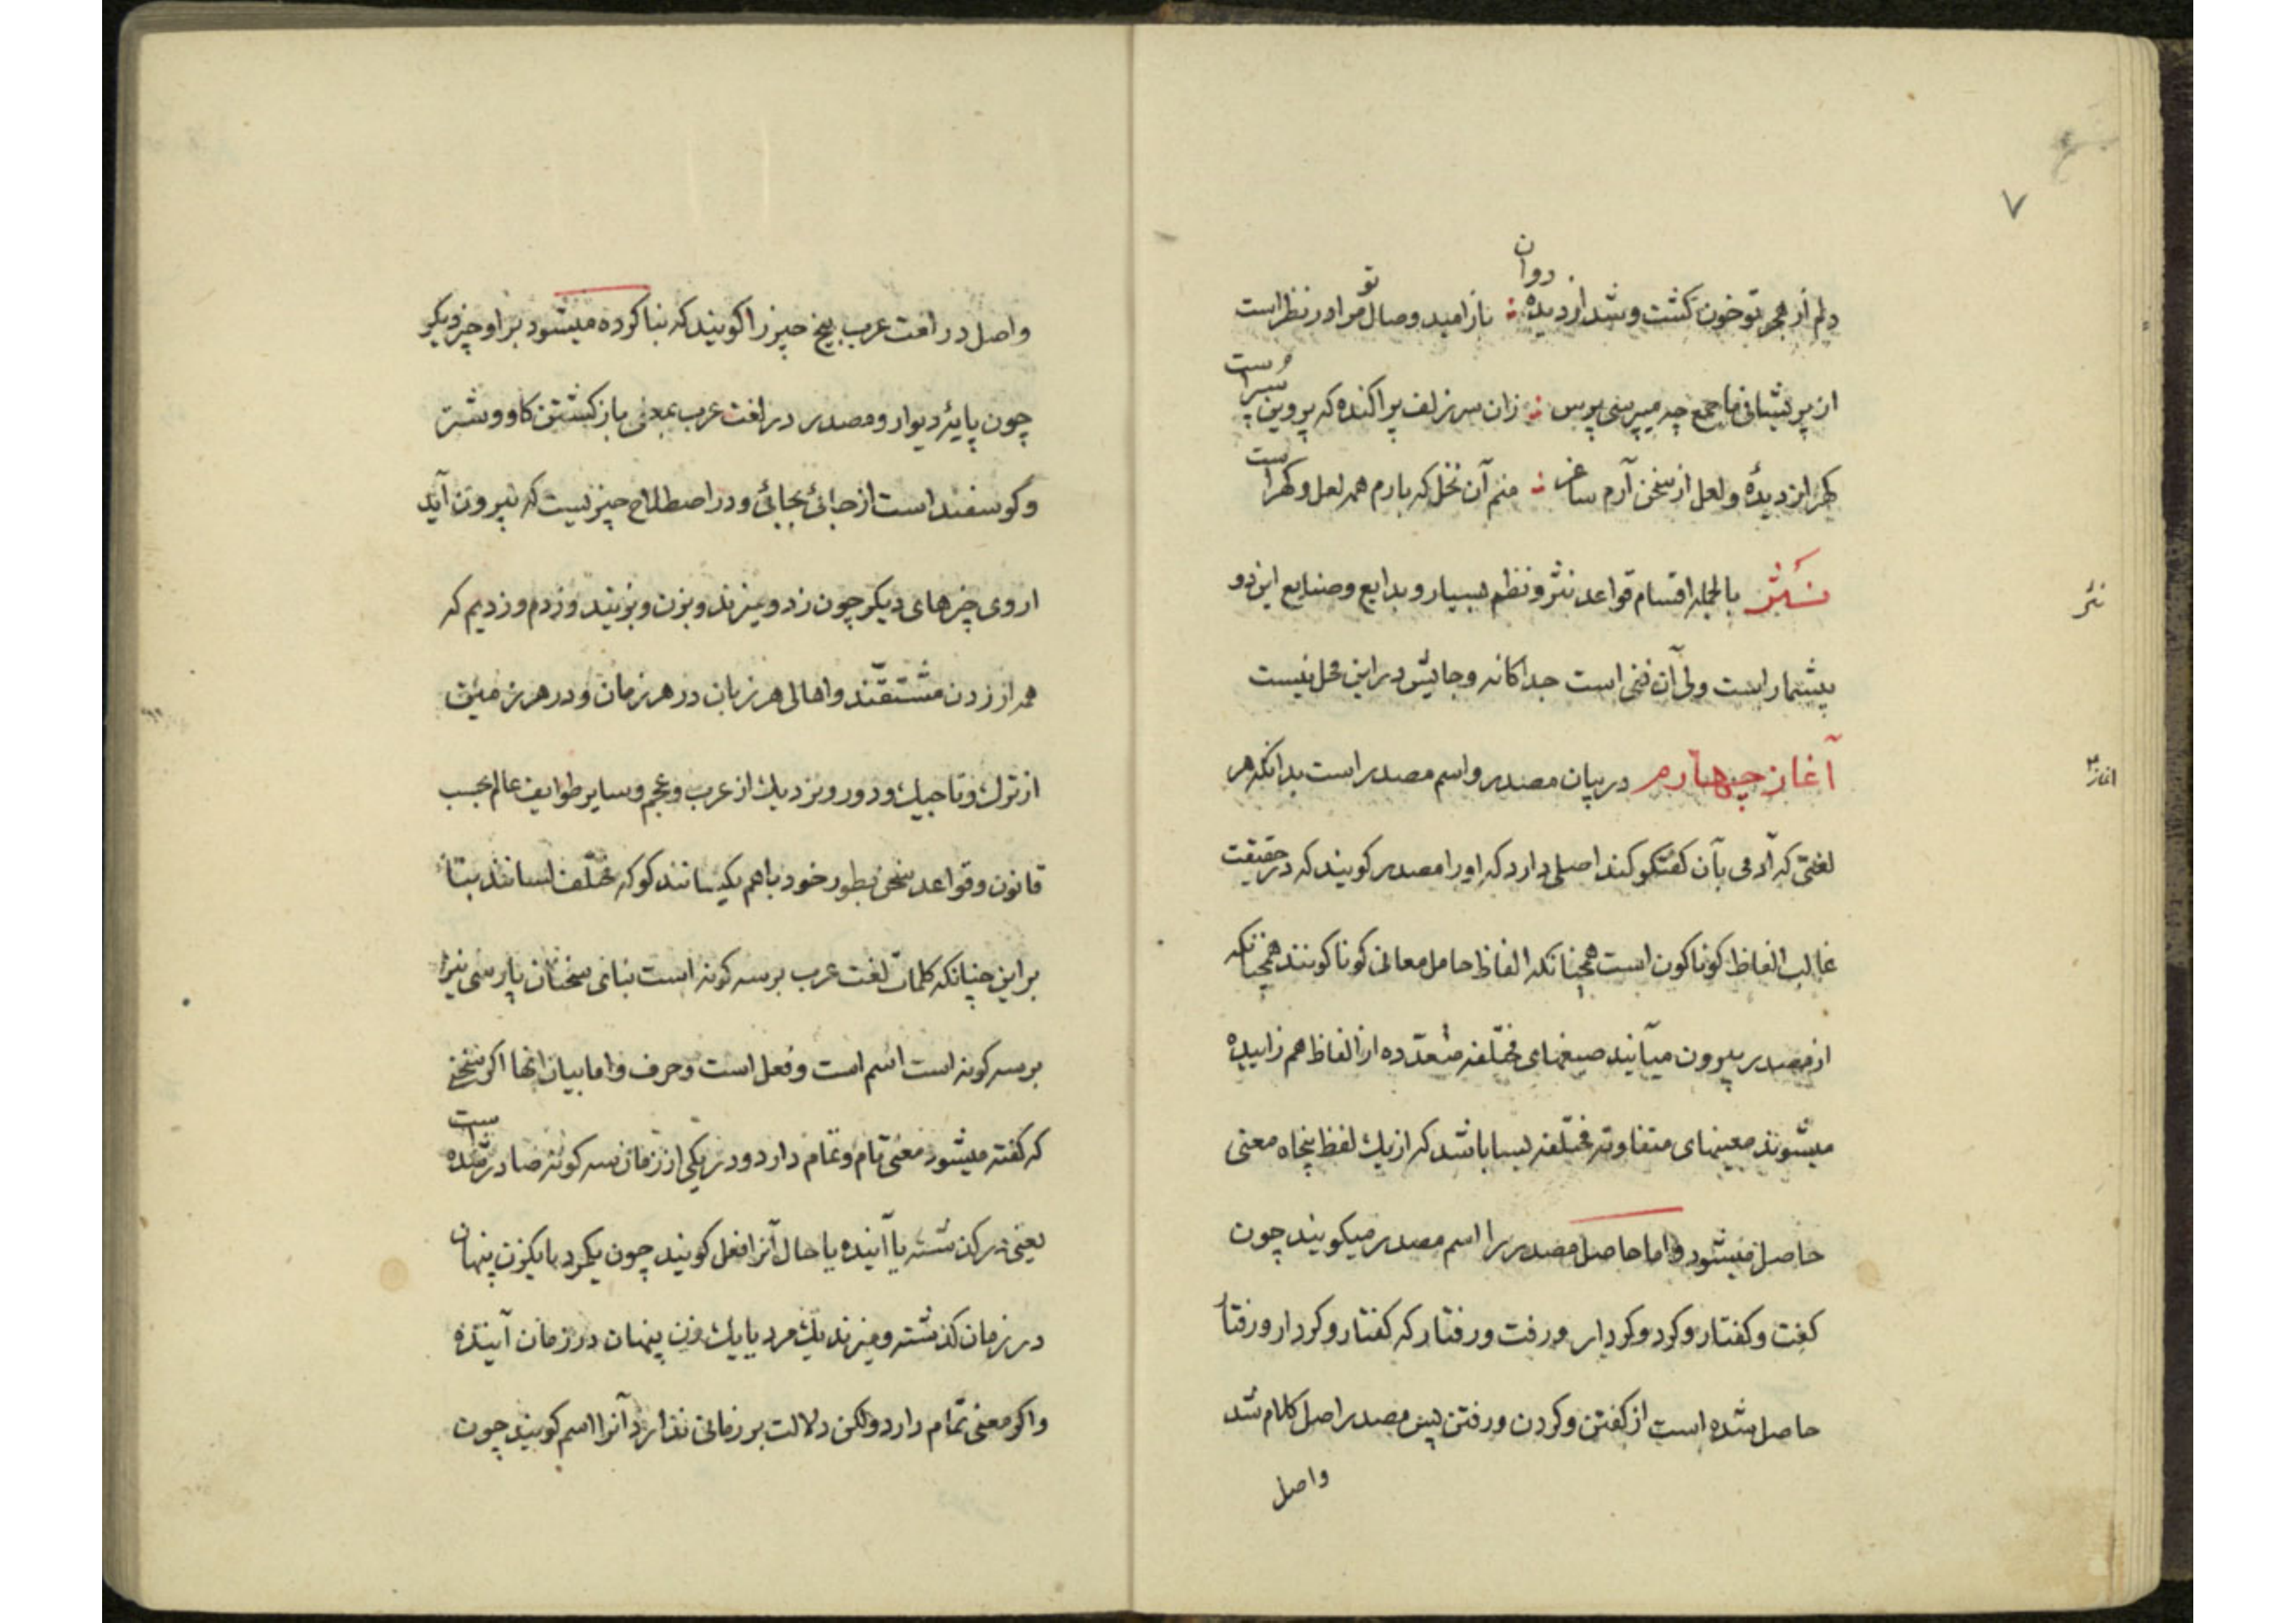 ۷
دلم از هجر تو خون کشت و شد از دیده روان : باز امید وصال تو مرا در نظر است
از پریشانی ما جمع چه میپرسی پرس : زان سر زلف پراکنده که پروین سپر است
کهر از دیدهٔ و لعل از سخن آرم ساغر : منم آن نخل که بارم همه لعل و کهر است
نثر بالجمله اقسام قواعد نثر و نظم بسیار و بدایع و صنایع این دو
نثر
بیشمار است ولی آن فنی است جداکانه و جائیش در این محل نیست
آغاز چهارم در بیان مصدر و اسم مصدر است بدانکه هر
اغاز ۴
لغتی که آدمی بآن کفتکو کند اصلی دارد که او را مصدر کویند که در حقیقت
غالب الفاظ کوناکون است همچنانکه الفاظ حامل معانی کوناکونند همچنانکه
از مصدر بیرون میآیند صیغهای مختلفه متعدّده از الفاظ هم زاییده
میشوند معنیهای متفاوته مختلفه بسا باشد که از یك لفظ پنجاه معنی
حاصل میشود و اما حاصل مصدر را اسم مصدر میکویند چون
کفت و کفتار و کرد و کردار و رفت و رفتار که کفتار و کردار و رفتار
حاصل شده است از کفتن و کردن و رفتن پس مصدر اصل کلام شد
واصل
واصل در لغت عرب بیخ چیز را کویند که بنا کرده میشود بر او چیز دیکر
چون پایهٔ دیوار و مصدر در لغت عرب بمعنی باز کشتن کاو و شتر
و کوسفند است از جائی بجائی و در اصطلاح چیزیست که بیرون آید
از وی چیزهای دیکر چون زد و میزند و بزن و بزنند و زدم و زدیم که
همه از زدن مشتقّند و اهالی هر زبان در هر زمان و در هر زمین
از ترك و تاجیك و دور و نزدیك از عرب و عجم و سایر طوایف عالم بحسب
قانون و قواعد سخن بطور خود با هم یکسانند کو که مختلف لسانند بناءً
بر این چنانکه کلمات لغت عرب بر سه کونه است بنای سخنان پارسی نیز
بر سه کونه است اسم است و فعل است و حرف و اما بیان انها اکر سخنی
که کفته میشود معنی تام و تمام دارد و در یکی از زمان سه کونه صادر شده است
یعنی در کذشته یا آینده یا حال آنرا فعل کویند چون یکمرد یا یکزن پنهان
در زمان کذشته و میزند یك مرد یا یك زن پنهان در زمان آینده
و اکر معنی تمام دارد ولکن دلالت بر زمانی ندارد آنرا اسم کویند چون